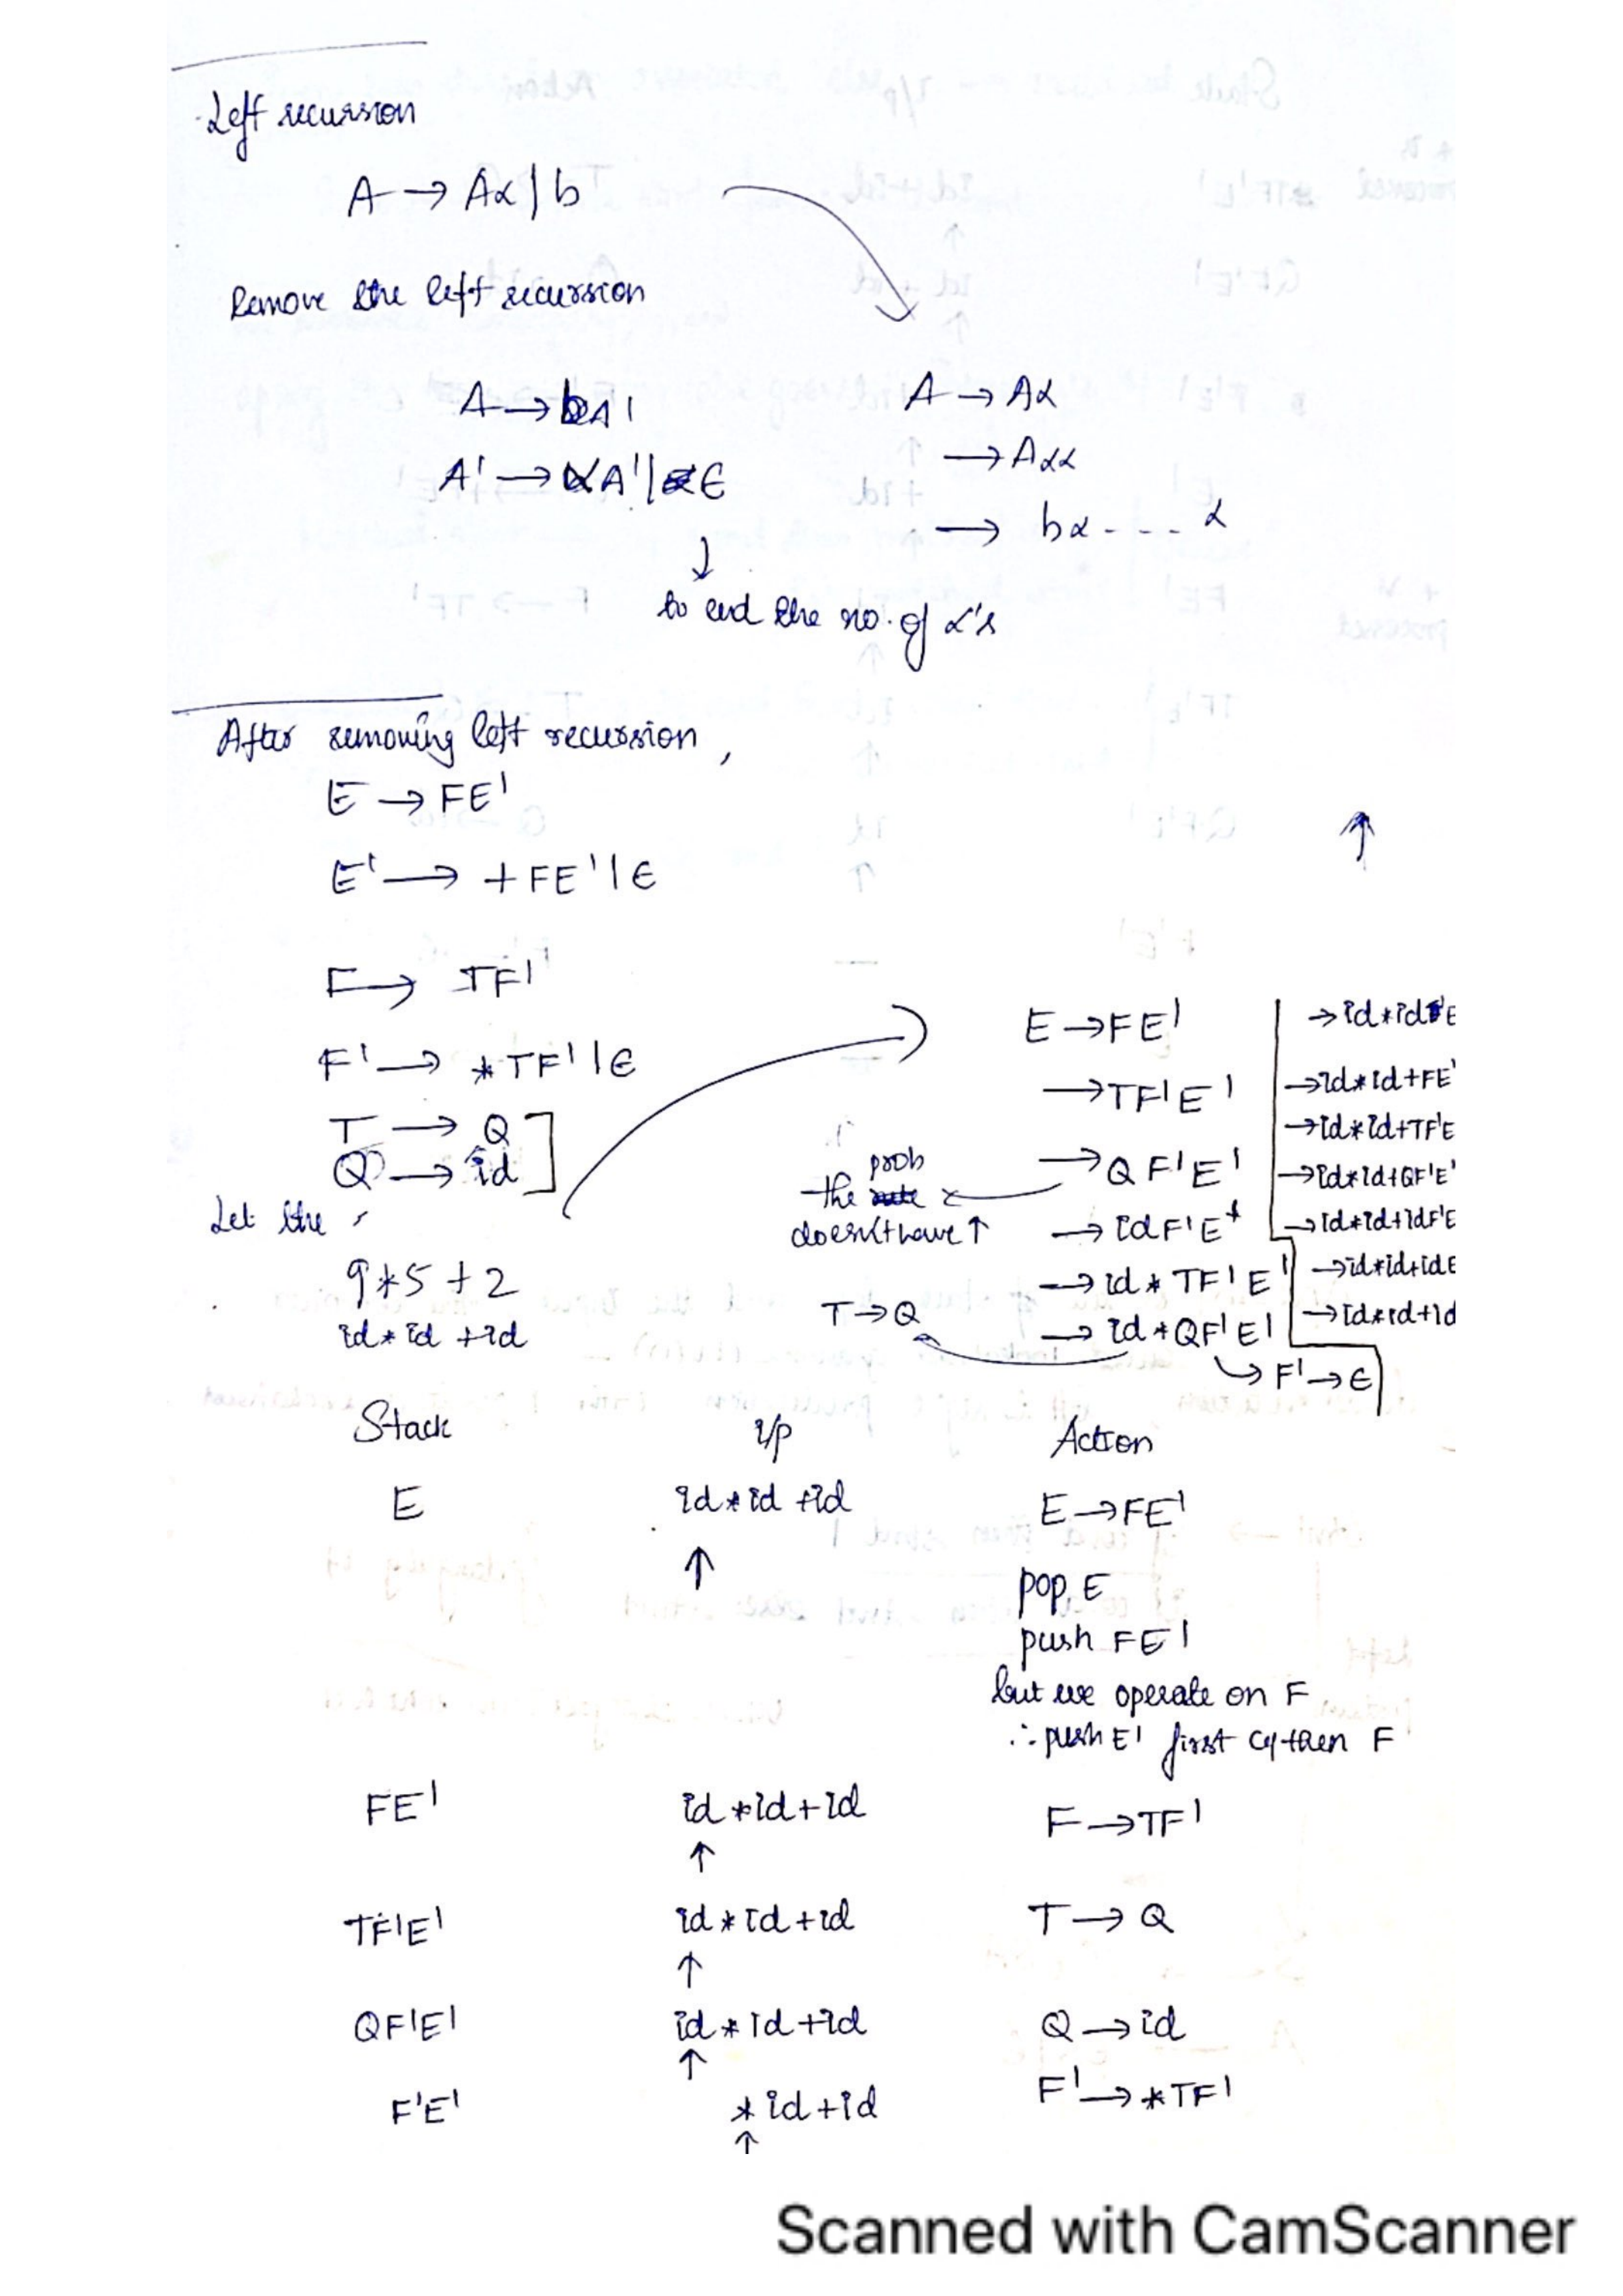 Left recursion
A → Aα | b
Remove the left recursion
A → bA'
A' → αA' | ϵ
↓
to end the no. of α's
A → Aα
→ Aαα
→ bα - - - - α
After removing left recursion,
E → FE'
E' → +FE' | ϵ
F → TF'
F' → *TF' | ϵ
T → Q
Q → id
Let the
9*5+2
id*id+id
↑
E → FE'
→ TF'E'
→ QF'E'
the prob
doesn't have ↑
→ idF'E'
→ id*TF'E'
→ id*QF'E'
T → Q
F' → ϵ
→ id*idF'E
→ id*id+FE'
→ id*id+TF'E
→ id*id+QF'E'
→ id*id+idF'E
→ id*id+idE
→ id*id+id
Stack i/p Action
E id*id+id E → FE'
↑
pop E
push FE'
but we operate on F
∴ push E' first & then F
FE' id*id+id F → TF'
↑
TF'E' id*id+id T → Q
↑
QF'E' id*id+id Q → id
↑
F'E' *id+id F' → *TF'
↑
Scanned with CamScanner